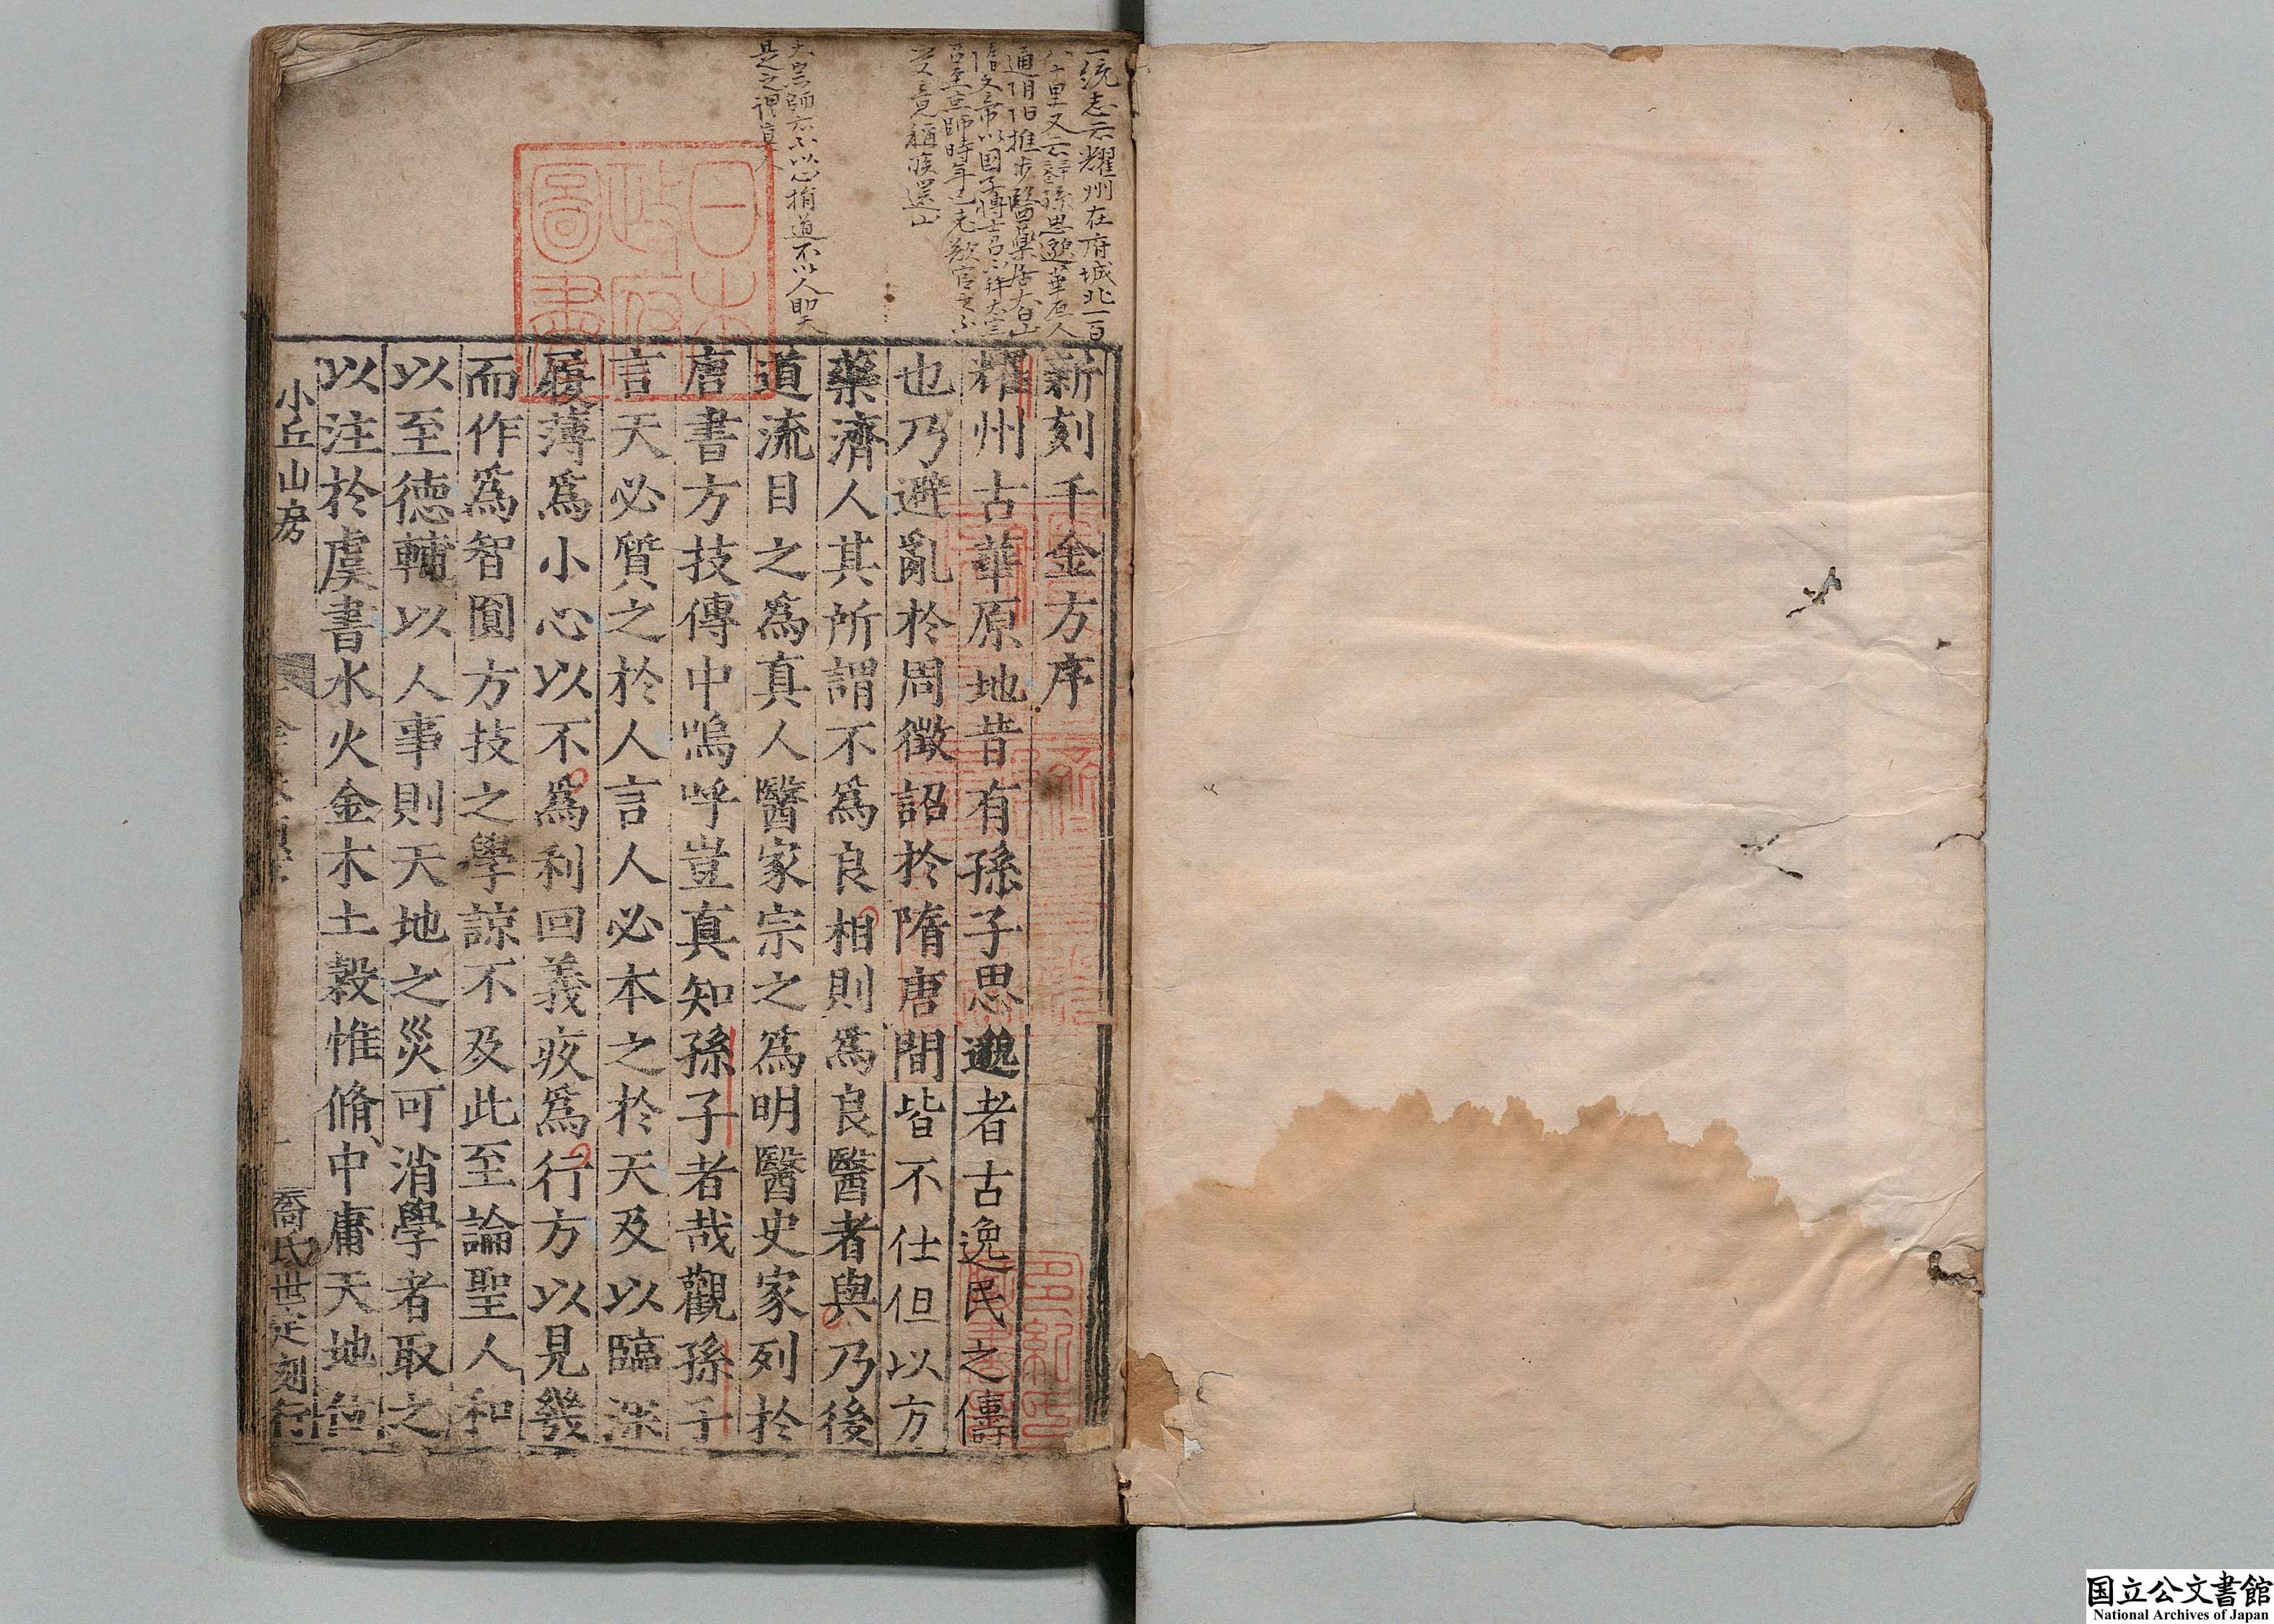 一統志云耀州在府城北一百
八十里又云孫思邈華原人
通陰陽推步醫藥居太白山
隋文帝以國子博士召不拜太宗
召至京師時年已老欲官之不
受竟稱疾還山
大宗師云不以心捐道不以人助天
是之謂真人
日本
政府
圖書
新刻千金方序
耀州古華原地昔有孫子思邈者古逸民之儔
也乃避亂於周徵詔於隋唐間皆不仕但以方
藥濟人其所謂不為良相則為良醫者與乃後
道流目之為真人醫家宗之為明醫史家列於
唐書方技傳中嗚呼豈真知孫子者哉觀孫子
言天必質之於人言人必本之於天及以臨深
履薄為小心以不為利回義疚為行方以見幾
而作為智圓方技之學諒不及此至論聖人和
以至德輔以人事則天地之災可消學者取之
以注於虞書水火金木土穀惟脩中庸天地位
小丘山房
一
喬氏世定刻行
国立公文書館
National Archives of Japan